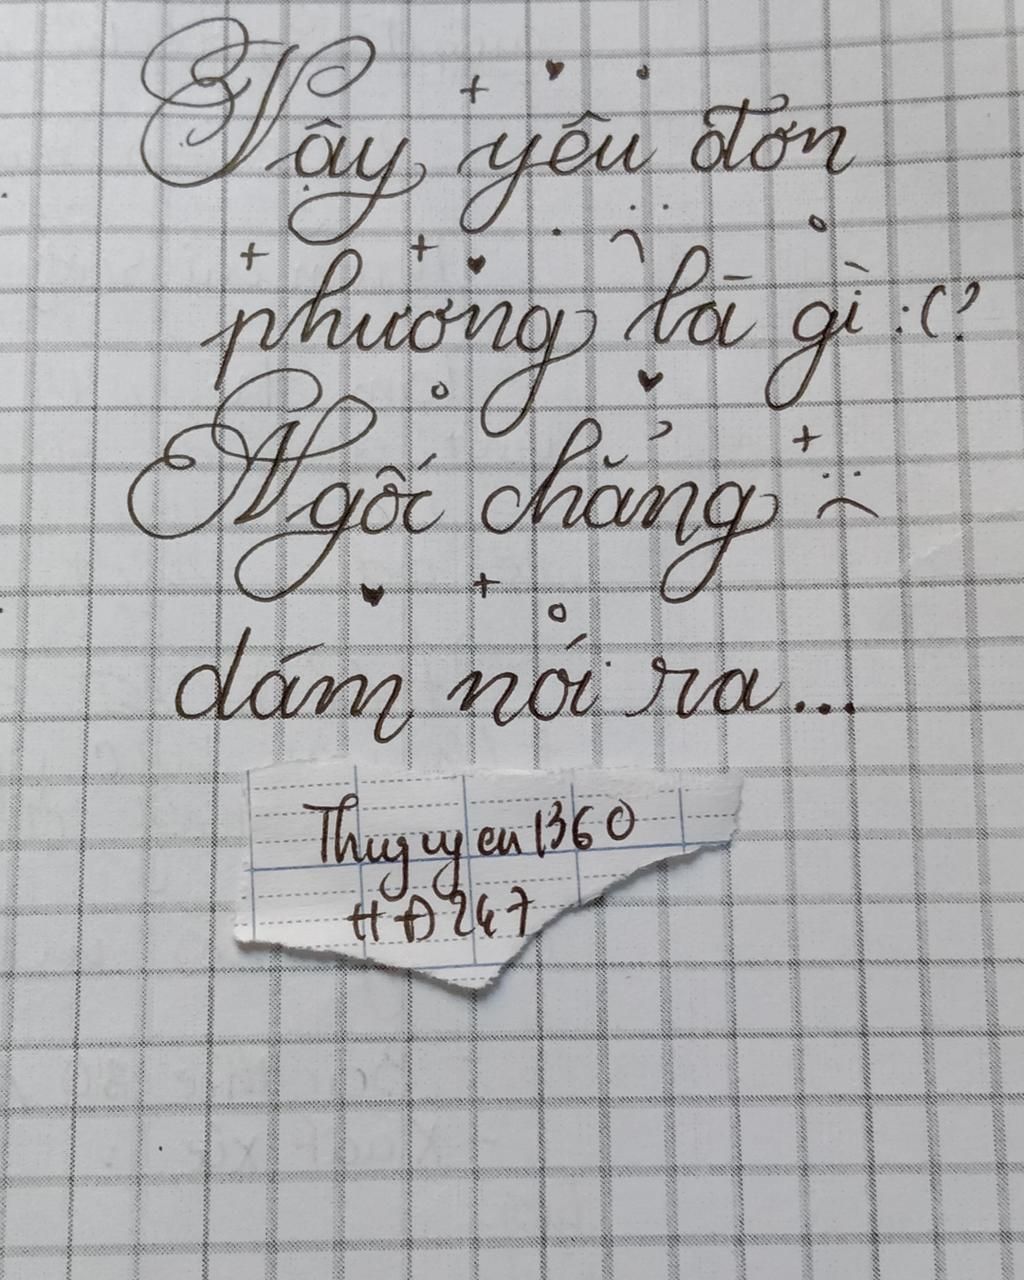 Vậy yêu đơn
phương là gì :(?
Ngốc chẳng
dám nói ra...
Thuyuyen1360
HĐ247